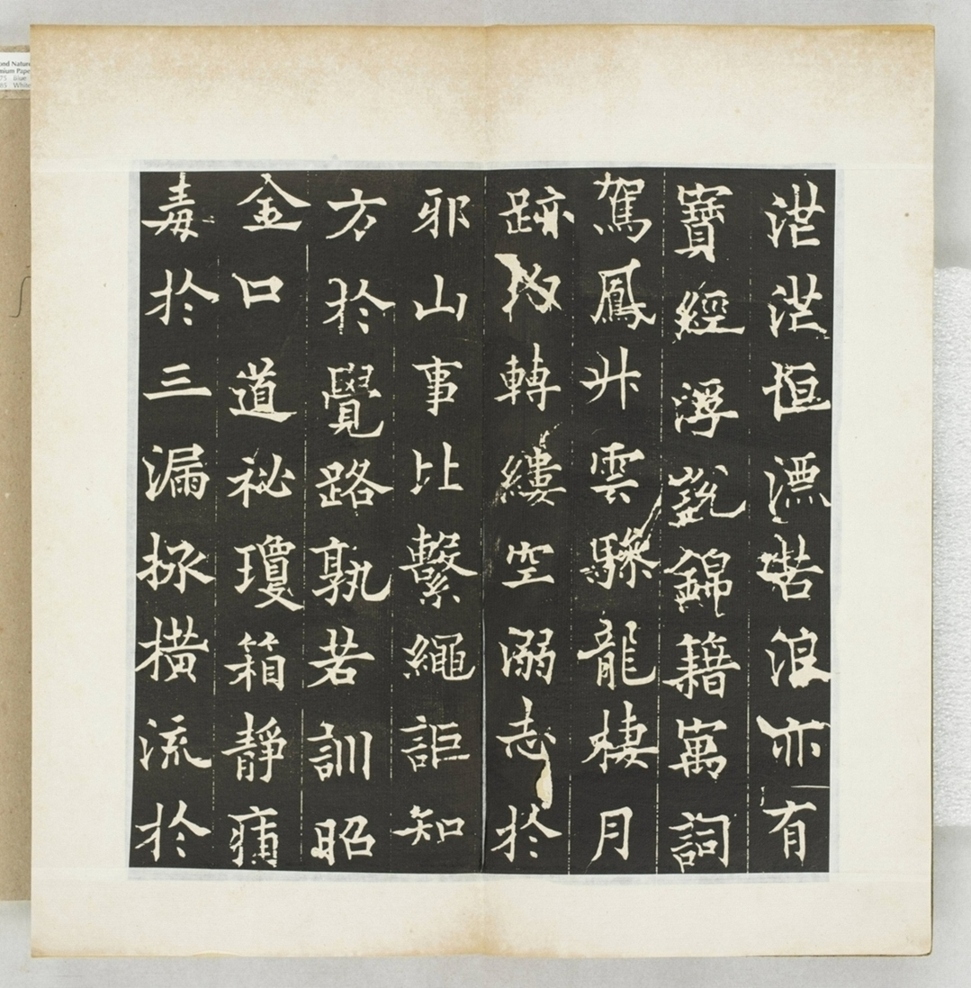 茫茫恒漂苦浪亦有
寶經浮說錦籍寓詞
駕鳳升雲驂龍棲月
跡轉縷空溺志於
邪山事比繫繩詎知
方於覺路孰若訓昭
金口道祕瓊箱靜痛
毒於三漏拯橫流於